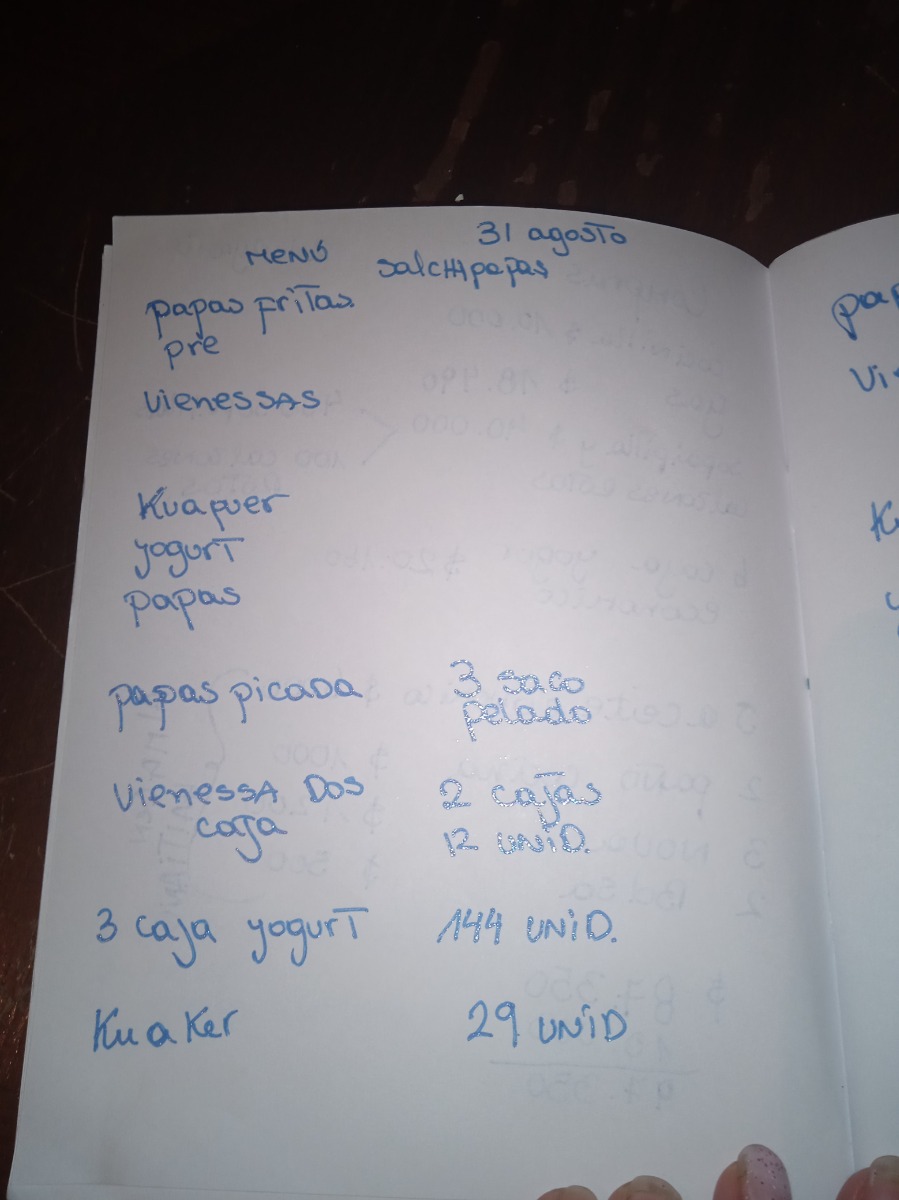 31 agosto
MENÚ salchipapas
papas fritas
pre
vienessas
Kuaquer
yogurt
papas
papas picada 3 saco
pelado
vienessa Dos 2 cajas
caja 12 uniD.
3 caja yogurt 144 UNiD.
Kuaker 29 UNiD
pap
Vi
K